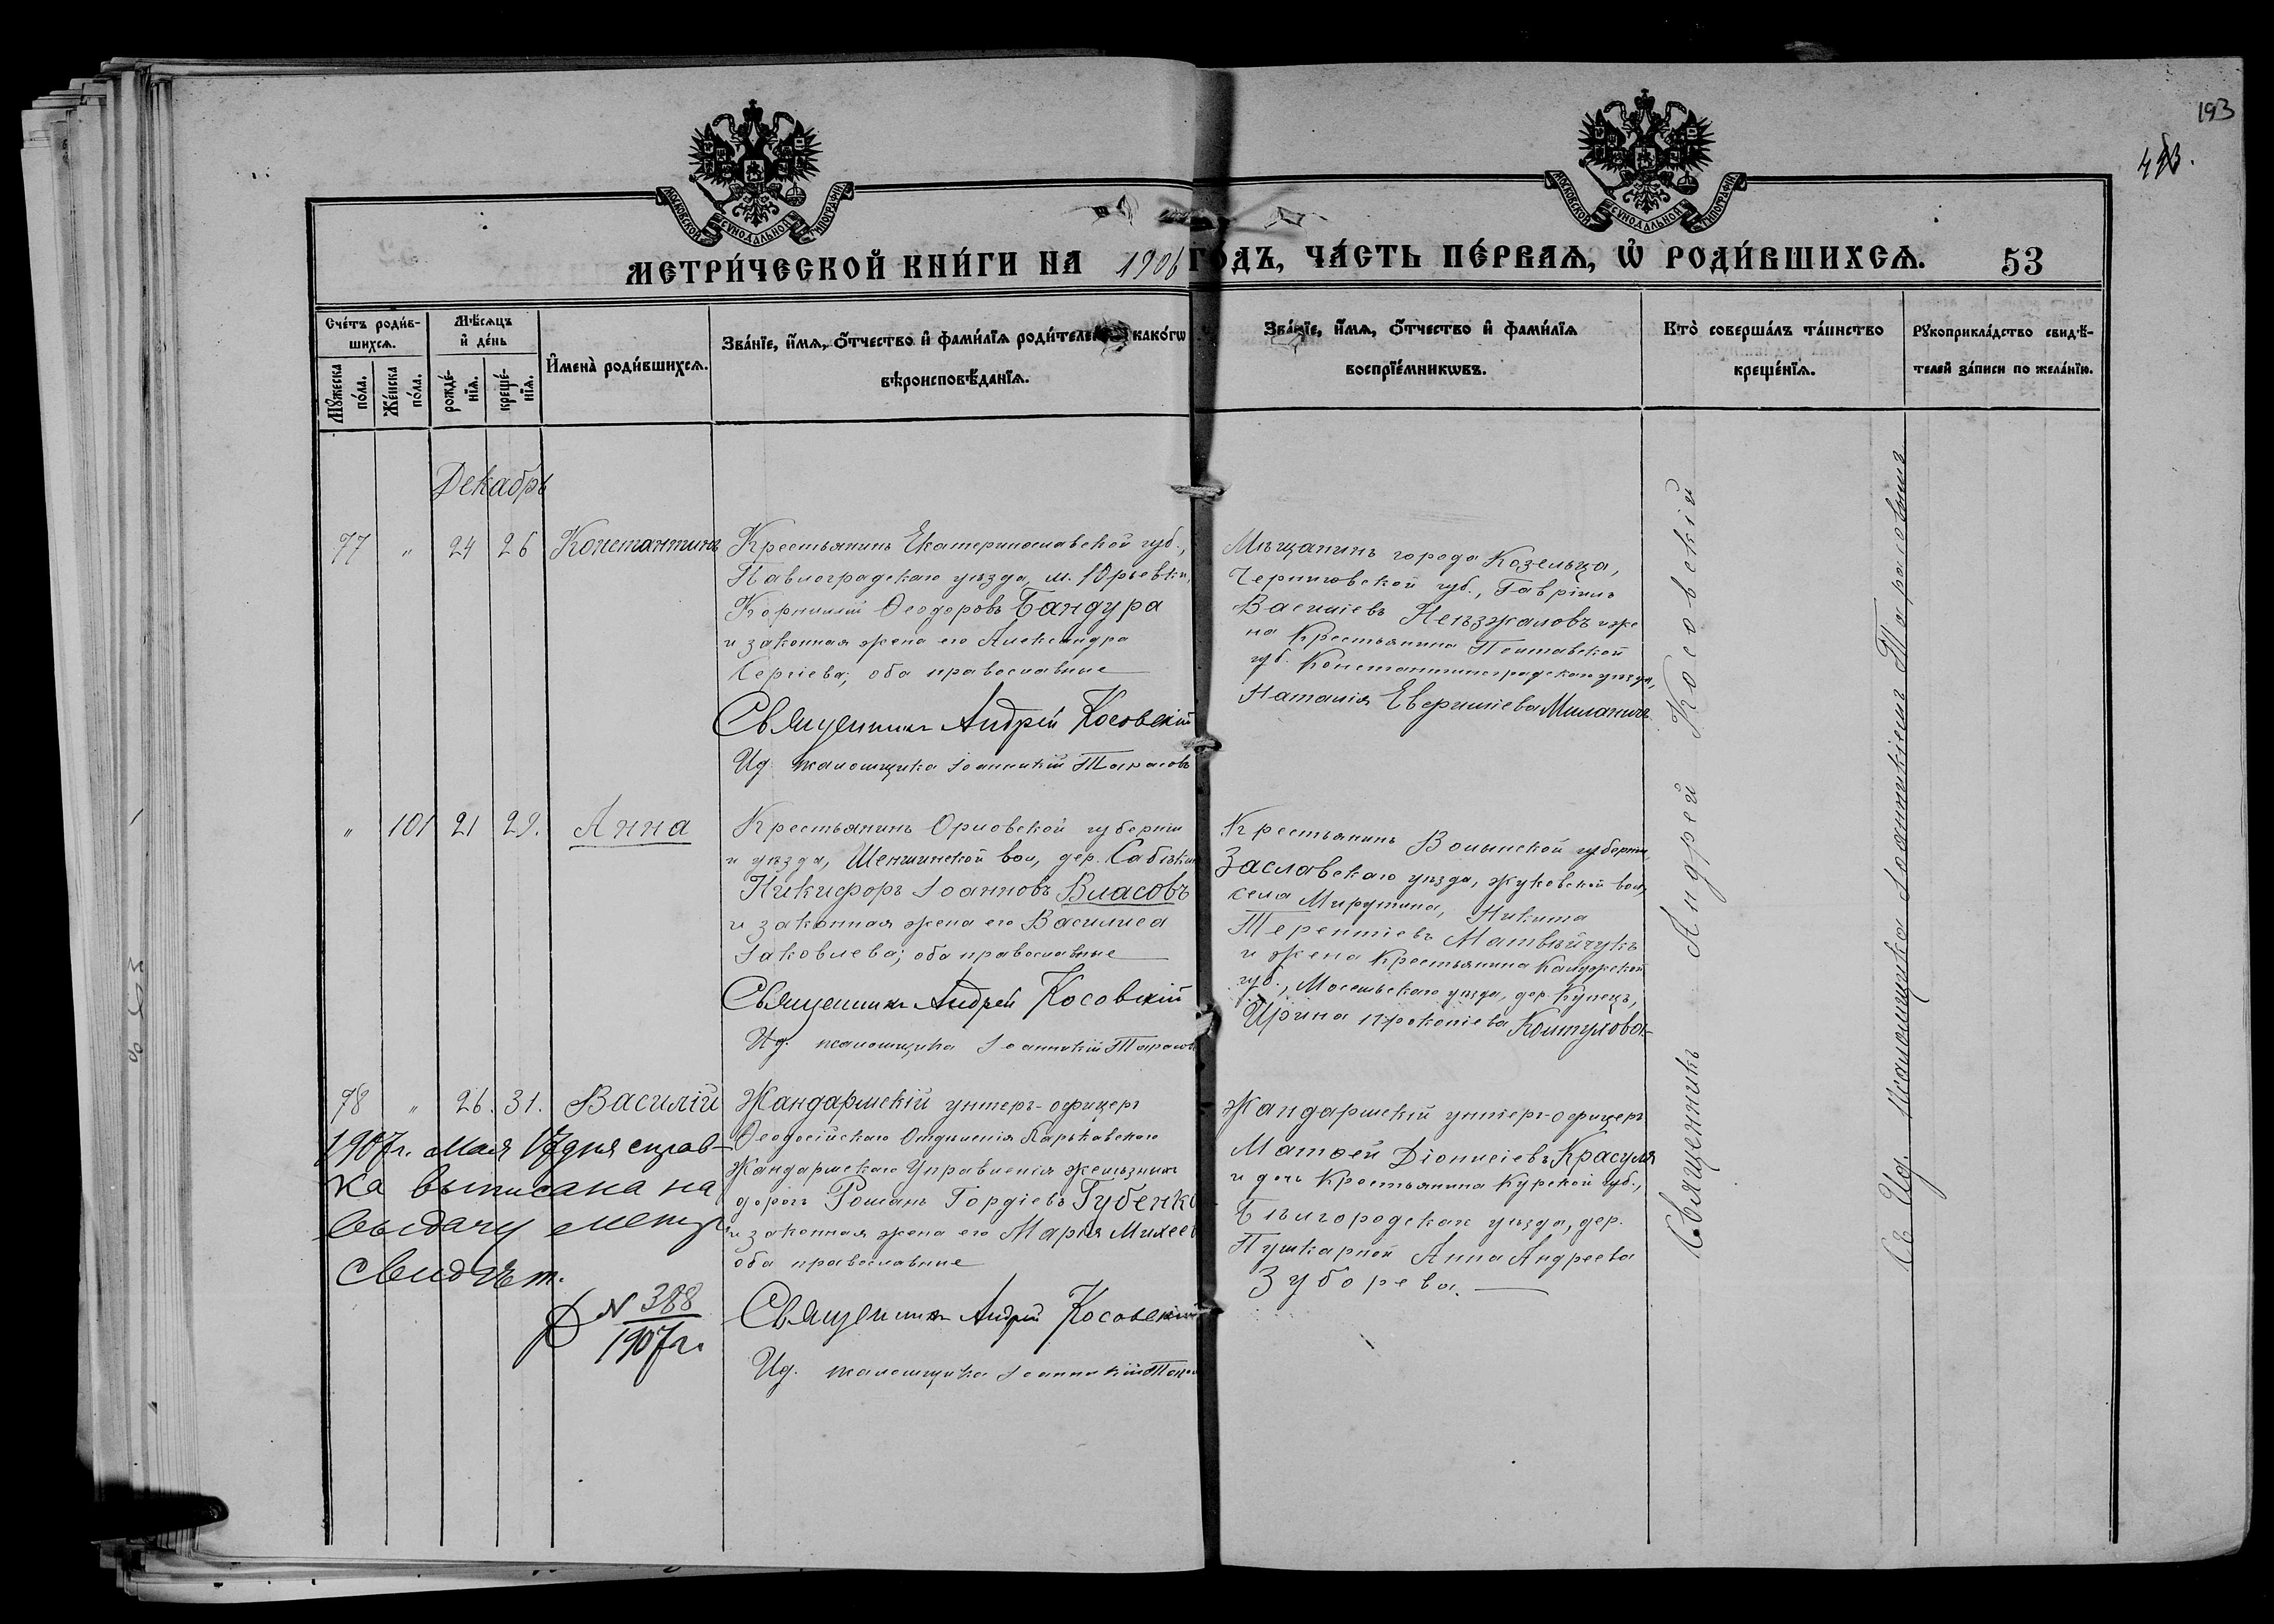 193
443.
МОСКОВСКОЙ СѴНОДАЛЬНОЙ ТИПОГРАФІИ
МОСКОВСКОЙ СѴНОДАЛЬНОЙ ТИПОГРАФІИ
МЕТРИ́ЧЕСКОЙ КНИ́ГИ НА 1906 ГОДЪ, ЧА́СТЬ ПЕ́РВАѦ, Ѽ РОДИ́ВШИХСѦ. 53
Сче́тъ роди́в-
шихсѧ.
Мѣ́сѧцъ
и҆ де́нь
Мꙋ́жеска
по́ла.
Же́нска
по́ла.
рожде́-
нїѧ.
креще́-
нїѧ.
И҆мена̀ роди́вшихсѧ.
Зва́нїе, и҆́мѧ, ѻ҆́тчество и҆ фами́лїѧ роди́телей како́гѡ
вѣроисповѣ́данїѧ.
Зва́нїе, и҆́мѧ, ѻ҆́тчество и҆ фами́лїѧ
воспрїе́мникѡвъ.
Кто̀ соверша́лъ та́инство
креще́нїѧ.
Рꙋкоприкла́дство свидѣ́-
телей за́писи по жела́нїю.
Декабрь
77 " 24 26 Константинъ
Крестьянинъ Екатеринославской губ.,
Павлоградскаго уѣзда, м. Юрьевки,
Корнилій Ѳеодоровъ Бандура
и законная жена его Александра
Сергіева; оба православные
Священникъ Андрей Косовскій
Ид. псаломщика Іоанникій Тарасовъ
Мѣщанинъ города Козельца,
Черниговской губ., Гавріилъ
Василіевъ Ненъзжаловъ и же
на Крестьянина Полтавской
губ. Константиноградскаго уѣзда,
Наталія Евергиліева Миланичъ
" 101 21 29. Анна
Крестьянинъ Орловской губерніи
и уѣзда, Шеншинской вол, дер. Сабѣкин
Никифоръ Іоанновъ Власовъ
и законная жена его Василиса
Іаковлева; оба православные
Священникъ Андрей Косовскій
Ид. псаломщика Іоанникій Тарасовъ
Крестьянинъ Волынской губерніи,
Заславскаго уѣзда, Жуковской вол,
села Мирутина, Никита
Терентіевъ Матвѣйчукъ
и жена Крестьянина Калужской
губ., Мосальскаго уѣзда, дер. Купецъ,
Ирина Прокопіева Колтулова
78 " 26. 31. Василій
Жандармскій унтеръ-офицеръ
Ѳеодосійскаго Отдѣленія Харьковскаго
Жандармскаго Управленія желѣзныхъ
дорогъ Романъ Гордіевъ Губенко
и законная жена его Марія Михеев
оба православные
Священникъ Андрей Косовскій
Ид. псаломщика Іоанникій Тарас
Жандармскій унтеръ-офицеръ
Матѳей Діонисіевъ Красуля
и дочь Крестьянина Курской губ.,
Бѣлгородскаго уѣзда, дер.
Пушкарной Анна Андреева
Зуборева.
1907 г. Мая дня справ-
ка выписана на
выдачу метр.
свидѣт.
N 388
1907 г.
Священникъ Андрей Косовскій
Съ Ид. псаломщика Іоанникіемъ Тарасовымъ